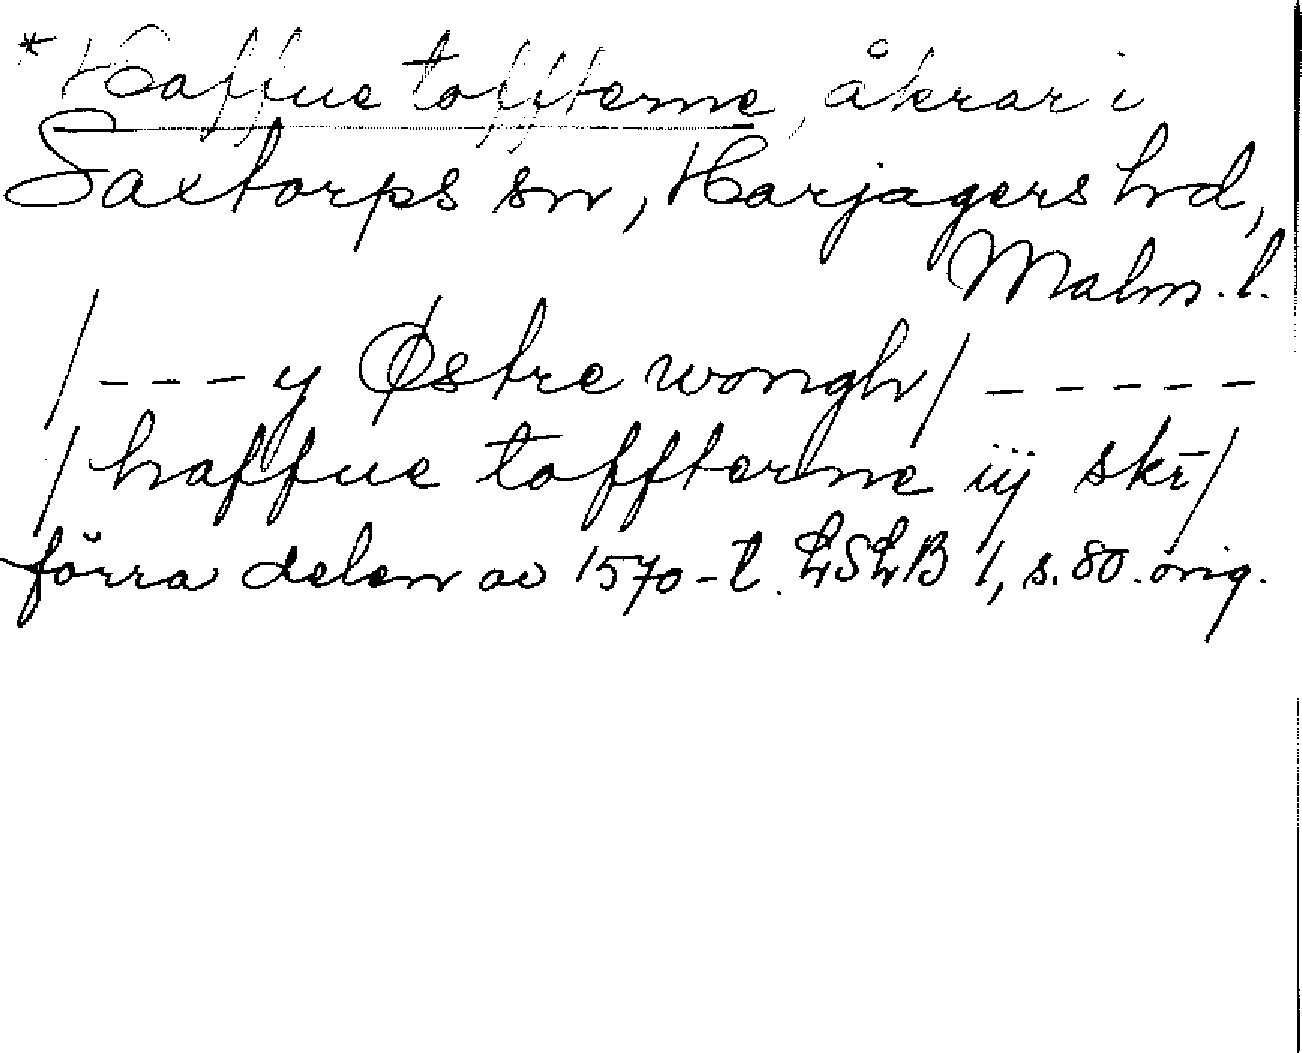 * Haffue toffterne, åkrar i
Saxtorps sn, Harjagers hd,
Malm. l.
/ - - - y Østre wongh / - - - - -
/ haffue toffterne iij skr̄ /
förra delen av 1570-t. LSLB 1, s. 80. orig.